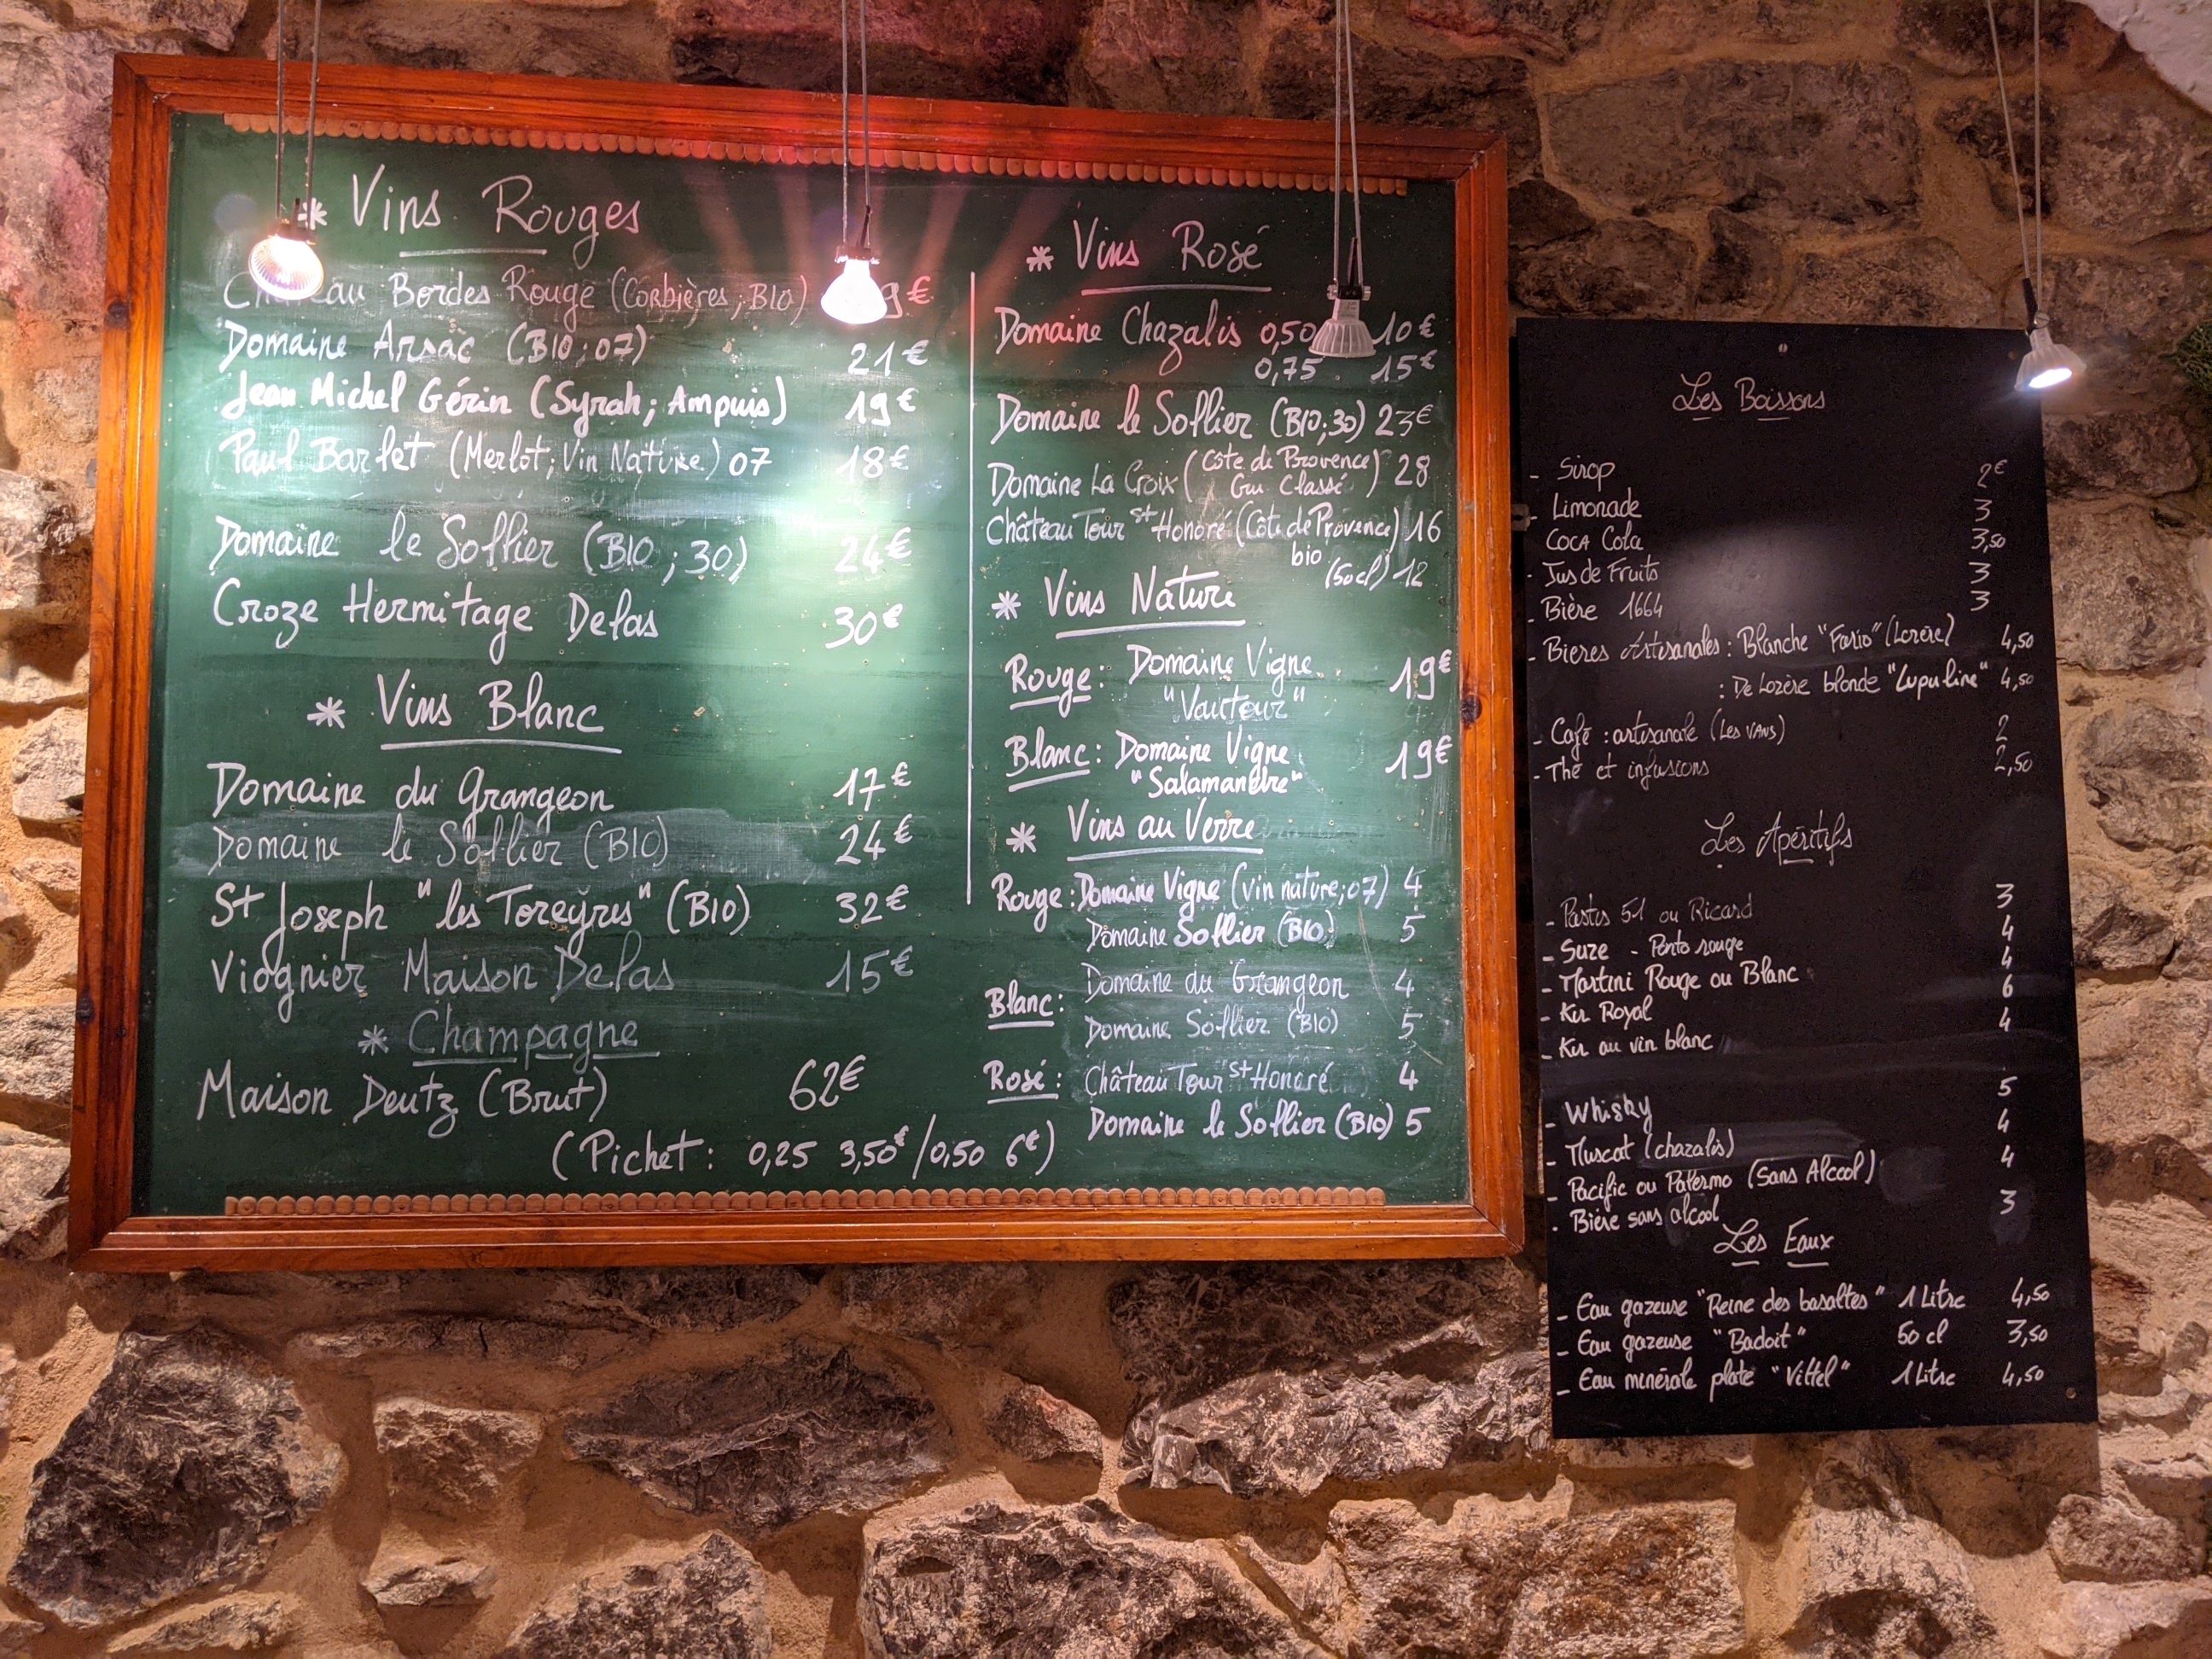 * Vins Rouges
Bordes Rouge (Corbières; BIO) 9€
Domaine Arsac (BIO; 07) 21€
Jean Michel Gérin (Syrah; Ampuis) 19€
Paul Barlet (Merlot; Vin Nature) 07 18€
Domaine le Sollier (BIO; 30) 24€
Croze Hermitage Delas 30€
* Vins Blanc
Domaine du Grangeon 17€
Domaine le Sollier (BIO) 24€
St Joseph "les Toreÿres" (BIO) 32€
Viognier Maison Delas 15€
* Champagne
Maison Deutz (Brut) 62€
(Pichet: 0,25 3,50€/0,50 6€)
* Vins Rosé
Domaine Chazalis 0,50 10€
0,75 15€
Domaine le Sollier (BIO; 30) 23€
Domaine La Croix (Côte de Provence) 28
Cru Classé
Château Tour St Honoré (Côte de Provence) 16
bio
(50cl) 12
* Vins Nature
Rouge: Domaine Vigne 19€
"Vautour"
Blanc: Domaine Vigne 19€
"Salamandre"
* Vins au Verre
Rouge: Domaine Vigne (vin nature; 07) 4
Domaine Sollier (BIO) 5
Blanc: Domaine du Grangeon 4
Domaine Sollier (BIO) 5
Rosé: Château Tour St Honoré 4
Domaine le Sollier (BIO) 5
Les Boissons
- Sirop 2€
- Limonade 3
- Coca Cola 3,50
- Jus de Fruits 3
- Bière 1664 3
- Bieres Artisanales: Blanche "Fario" (Lozère) 4,50
: De Lozère blonde "Lupuline" 4,50
- Café: artisanale (Les Vans) 2
- Thé et infusions 2,50
Les Apéritifs
- Pastis 51 ou Ricard 3
- Suze - Porto rouge 4
- Martini Rouge ou Blanc 4
- Kir Royal 6
- Kir au vin blanc 4
- Whisky 5
- Muscat (chazalis) 4
- Pacific ou Palermo (Sans Alcool) 4
- Bière sans alcool 3
Les Eaux
- Eau gazeuse "Reine des basaltes" 1 Litre 4,50
- Eau gazeuse "Badoit" 50 cl 3,50
- Eau minérale plate "Vittel" 1 Litre 4,50